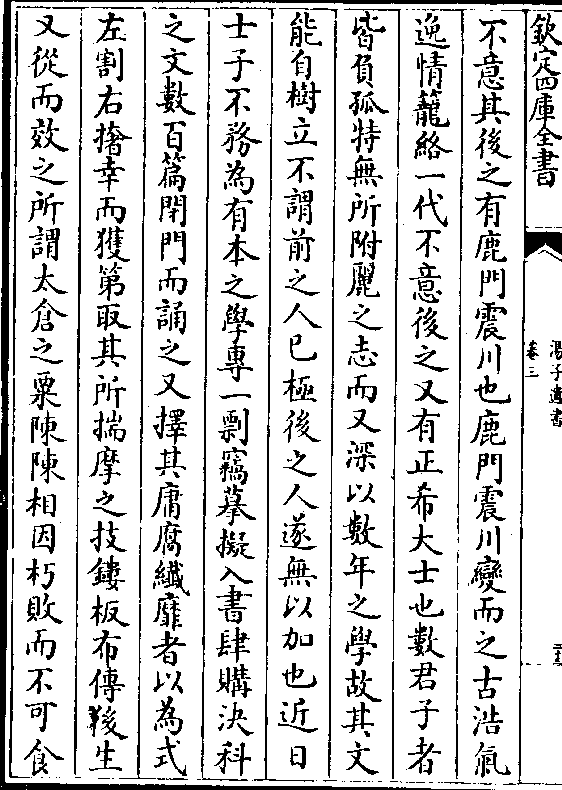 欽定四庫全書
湯子遺書
卷三
不意其後之有鹿門震川也鹿門震川變而之古浩氣
逸情籠絡一代不意後之又有正希大士也數君子者
皆負孤特無所附麗之志而又深以數年之學故其文
能自樹立不謂前之人已極後之人遂無以加也近日
士子不務為有本之學專一剽竊摹擬入書肆購決科
之文數百篇閉門而誦之又擇其庸腐纖靡者以為式
左割右撦幸而獲第取其所揣摩之技鏤板布傳後生
又從而效之所謂太倉之粟陳陳相因朽敗而不可食